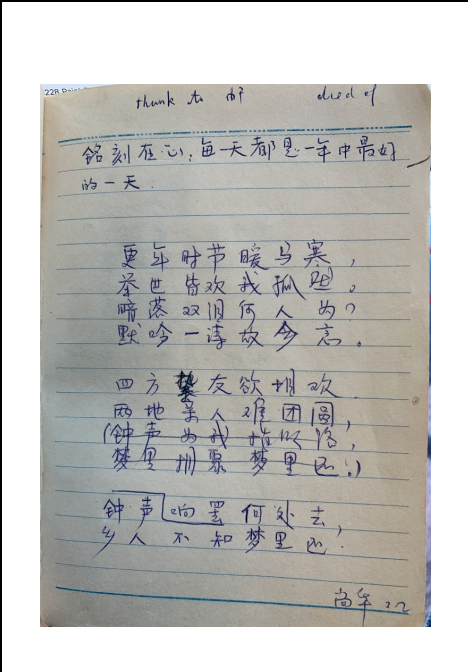 thank to
died of
铭刻在心，每一天都是一年中最好
的一天.
更年时节暖与寒，
举世皆欢我孤
暗落双泪何人为？
默吟一 故今言。
四方 友欲相欢
两地 人难团圆，
(钟声为我 ，
梦里相聚梦里还.)
钟声响罢何处去，
乡人不知梦里还.